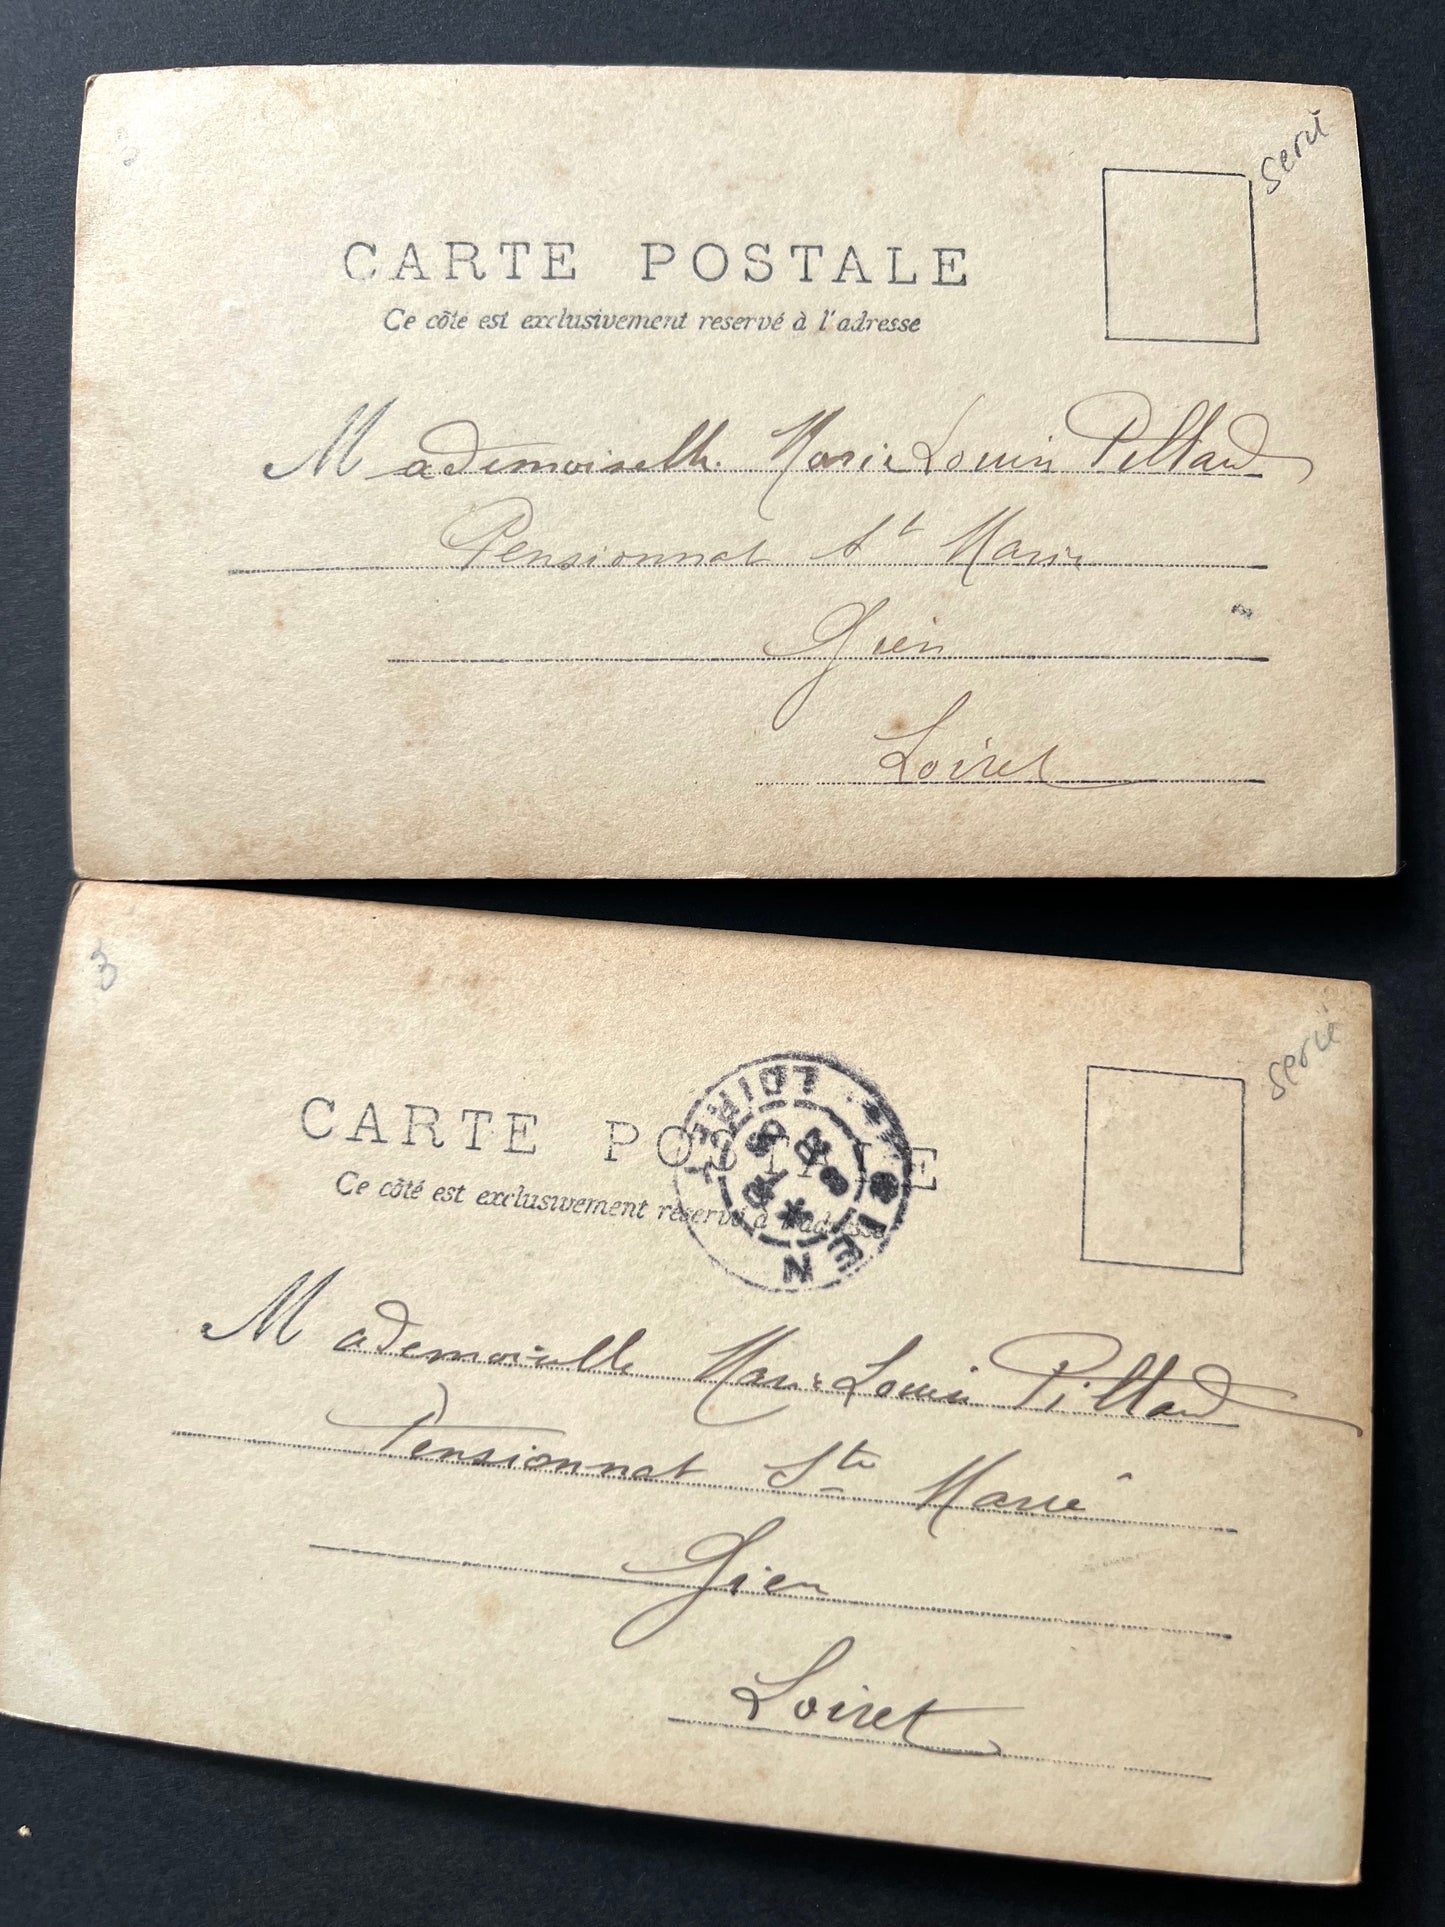 serie
CARTE POSTALE
Ce côté est exclusivement reservé à l'adresse
Mademoiselle Marie Louise Pillard
Pensionnat St Marie
Gien
Loiret
3
serie
CARTE POSTALE
Ce côté est exclusivement reservé à l'adresse
GIEN LOIRET
Mademoiselle Marie Louise Pillard
Pensionnat Ste Marie
Gien
Loiret